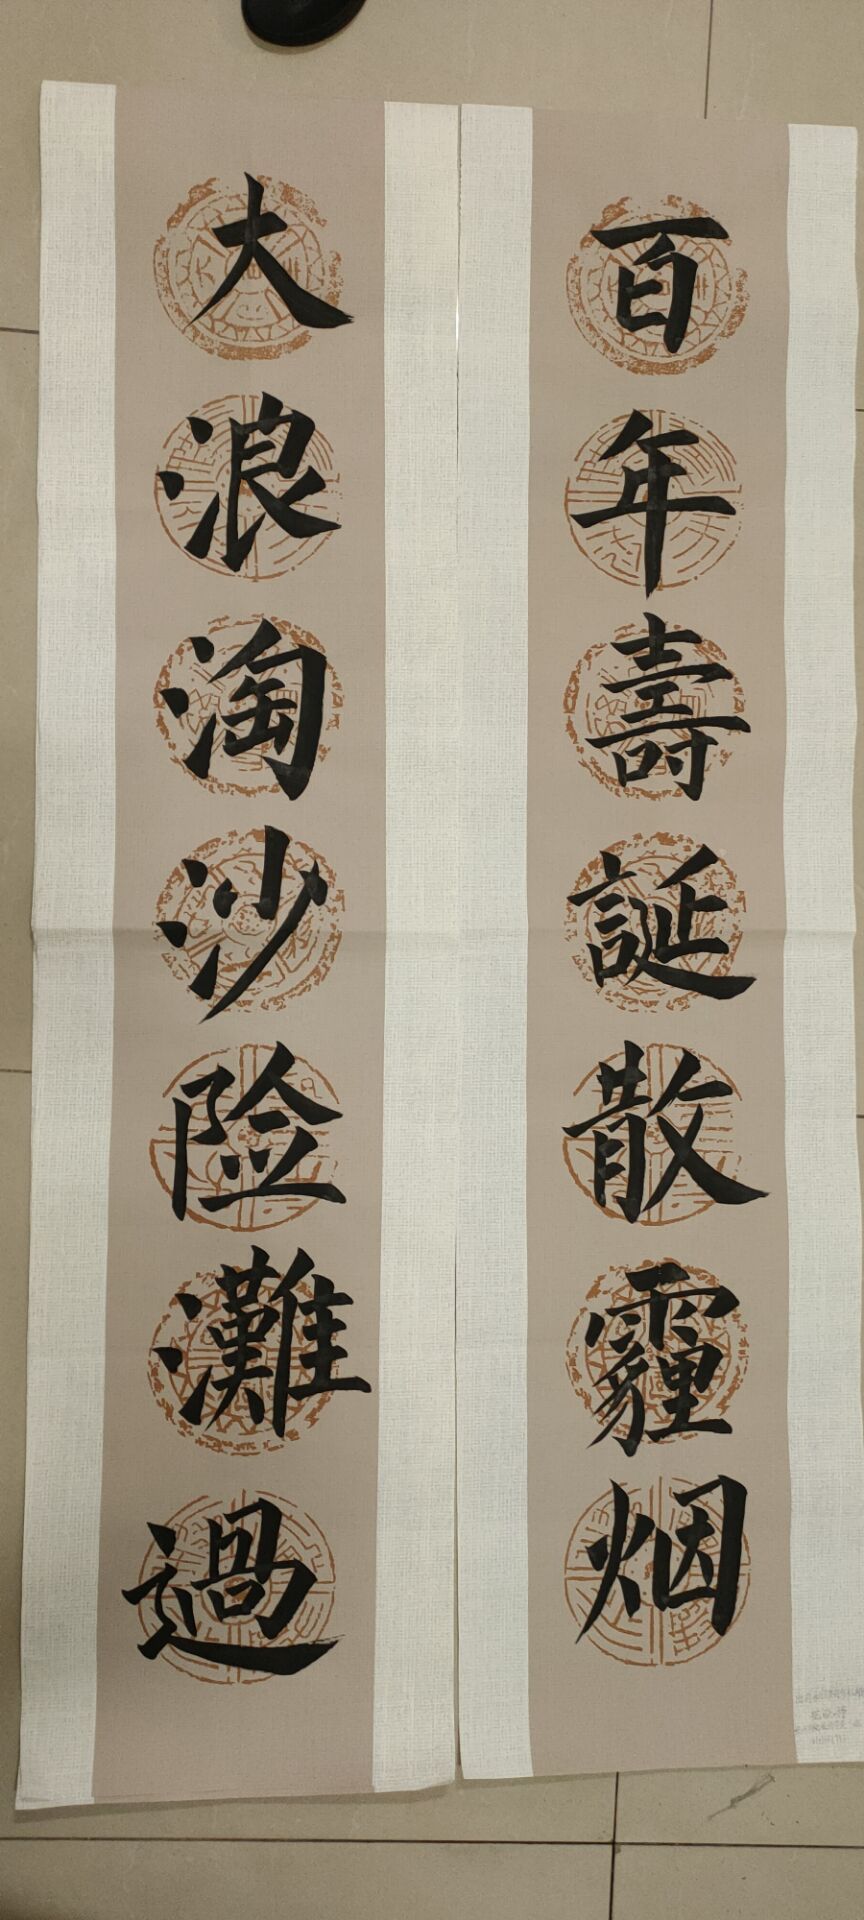 百年壽誕散霾烟
大浪淘沙险灘過